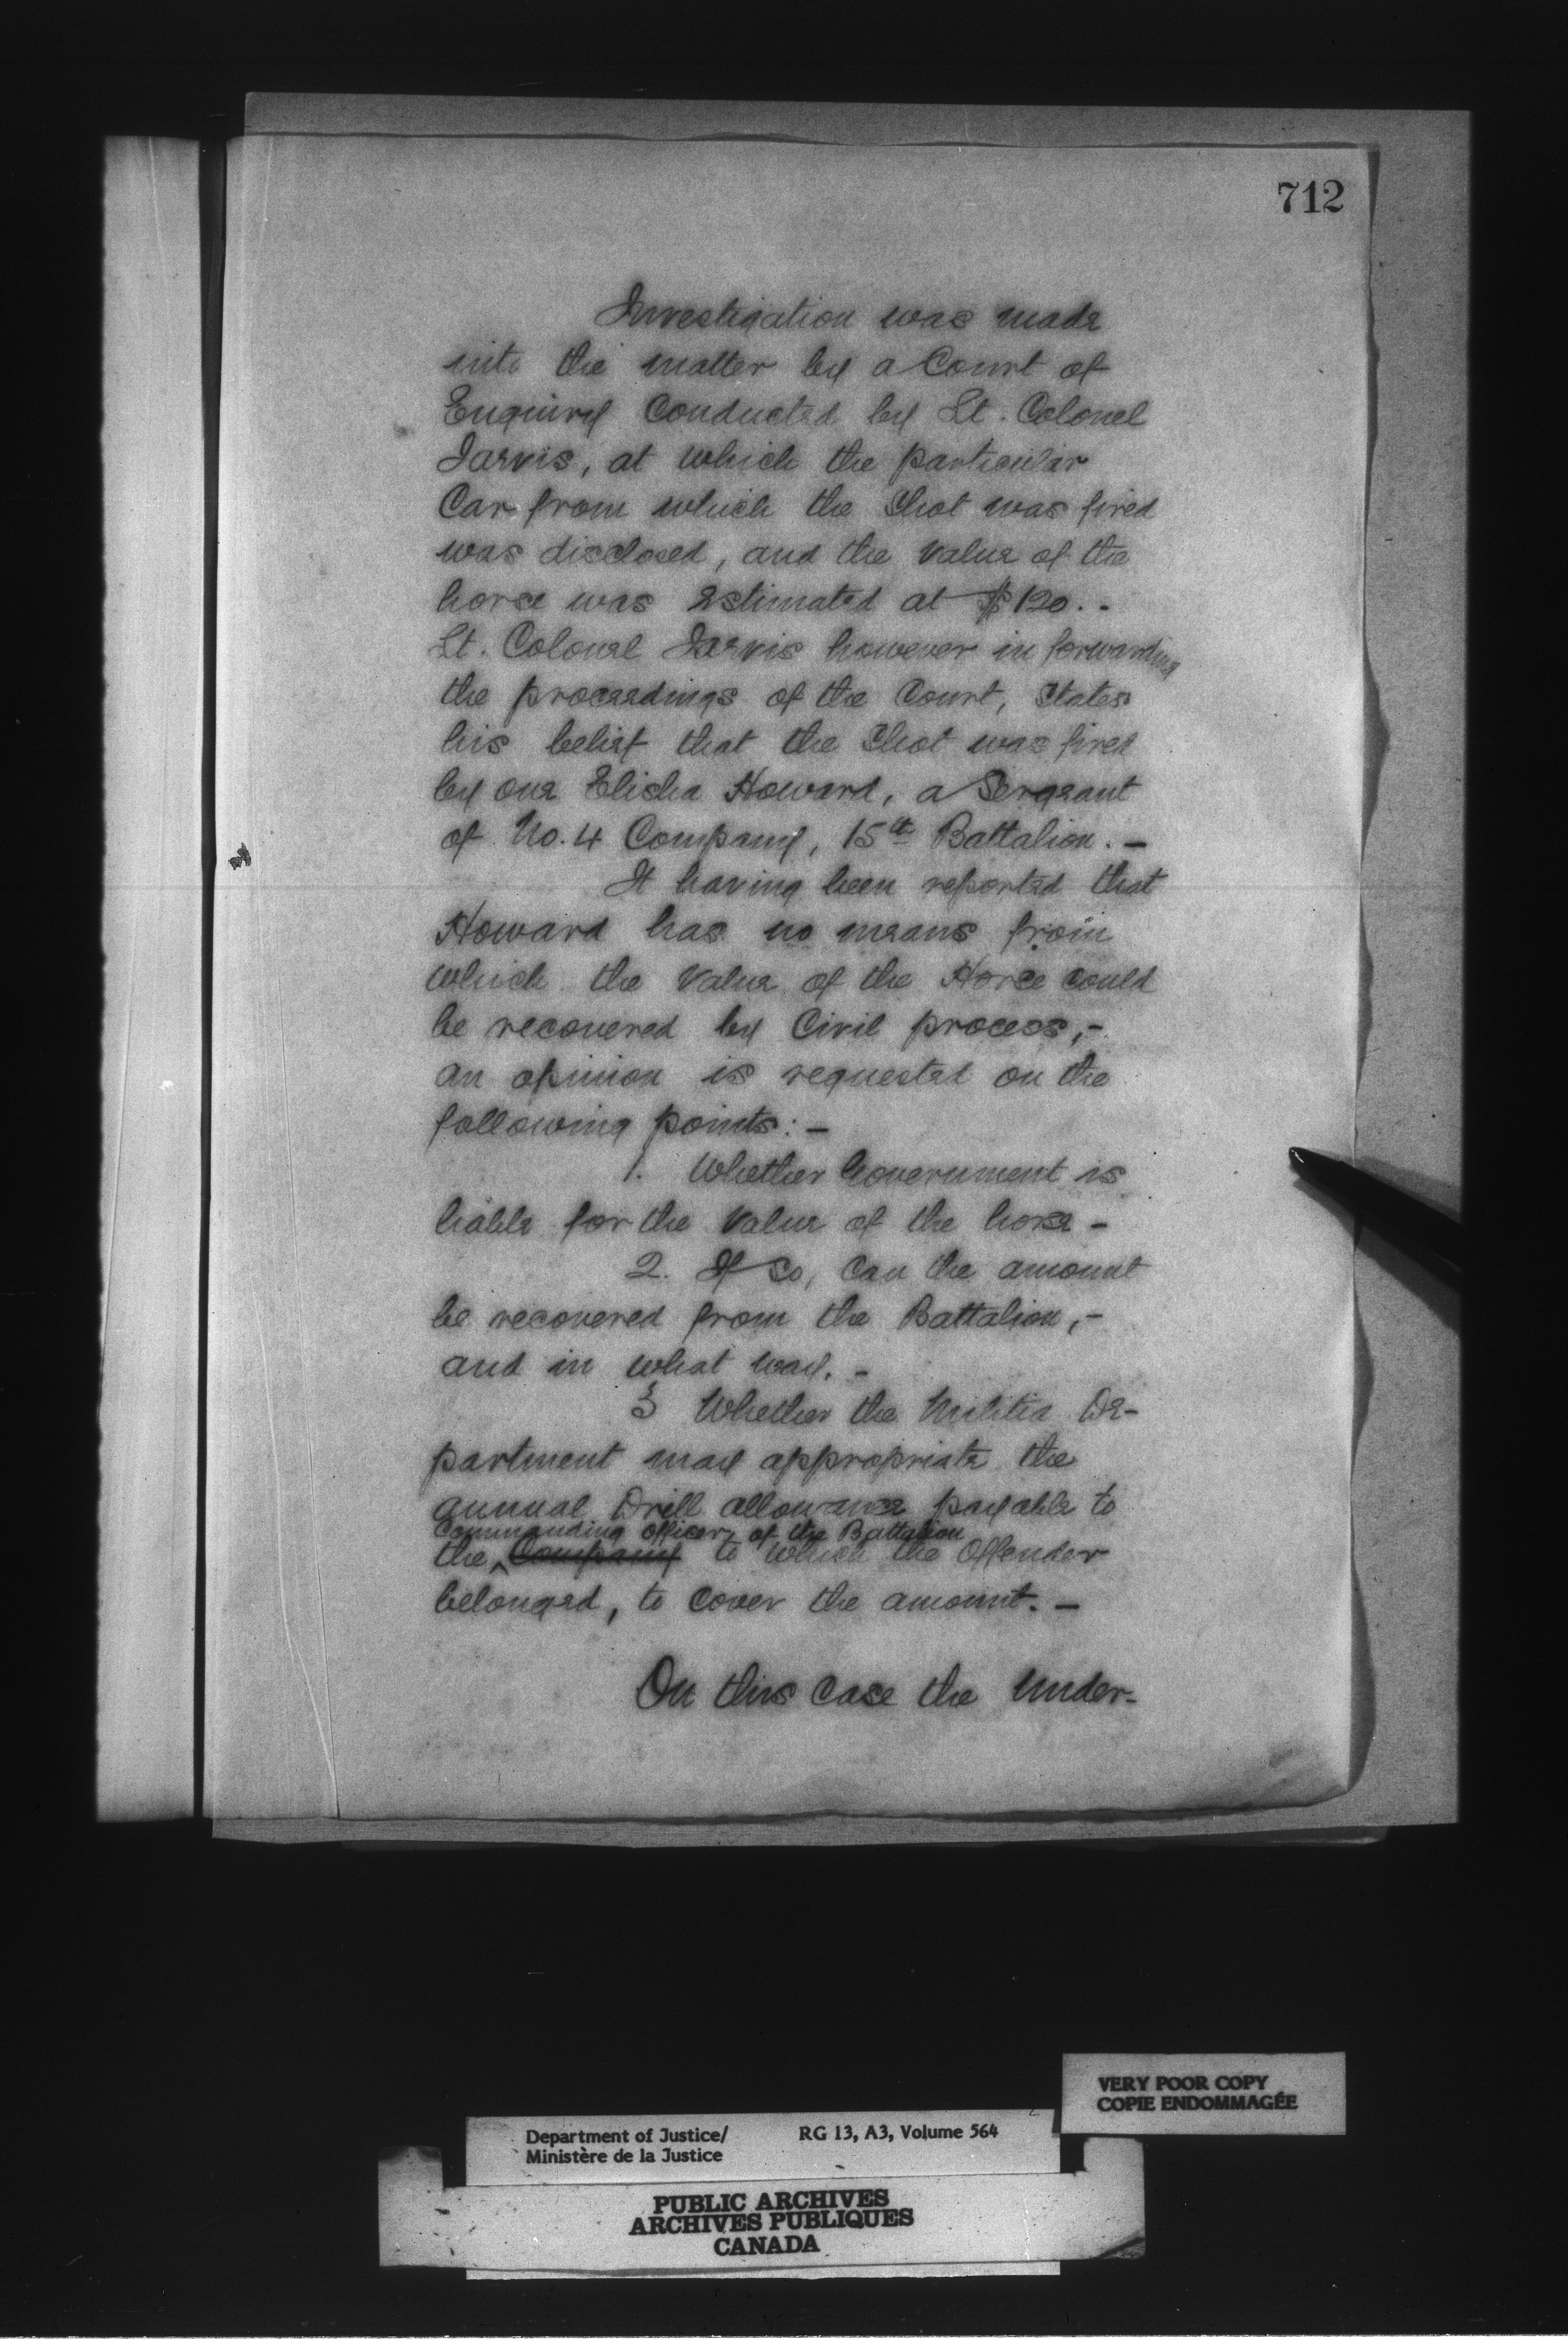 712
Investigation was made
into the matter by a Court of
Enquiry Conducted by Lt. Colonel
Jarvis, at which the particular
Car from which the Shot was fired
was disclosed, and the Value of the
horse was Estimated at $120. -
Lt. Colonel Jarvis however in forwarding
the proceedings of the Court, States
his belief that the Shot was fired
by one Elisha Howard, a Sergeant
of No. 4 Company, 15th Battalion. -
It having been reported that
Howard has no means from
which the Value of the Horse Could
be recovered by Civil process, -
an opinion is requested on the
following points: -
1. Whether Government is
liable for the Value of the horse -
2. If So, Can the amount
be recovered from the Battalion, -
and in what way. -
3 Whether the Militia De-
partment may appropriate the
annual Drill allowance payable to
Commanding officer of the Battalion
the Company to which the Offender
belonged, to Cover the amount. -
On this Case the Under-
VERY POOR COPY
COPIE ENDOMMAGÉE
Department of Justice/ RG 13, A3, Volume 564
Ministère de la Justice
PUBLIC ARCHIVES
ARCHIVES PUBLIQUES
CANADA